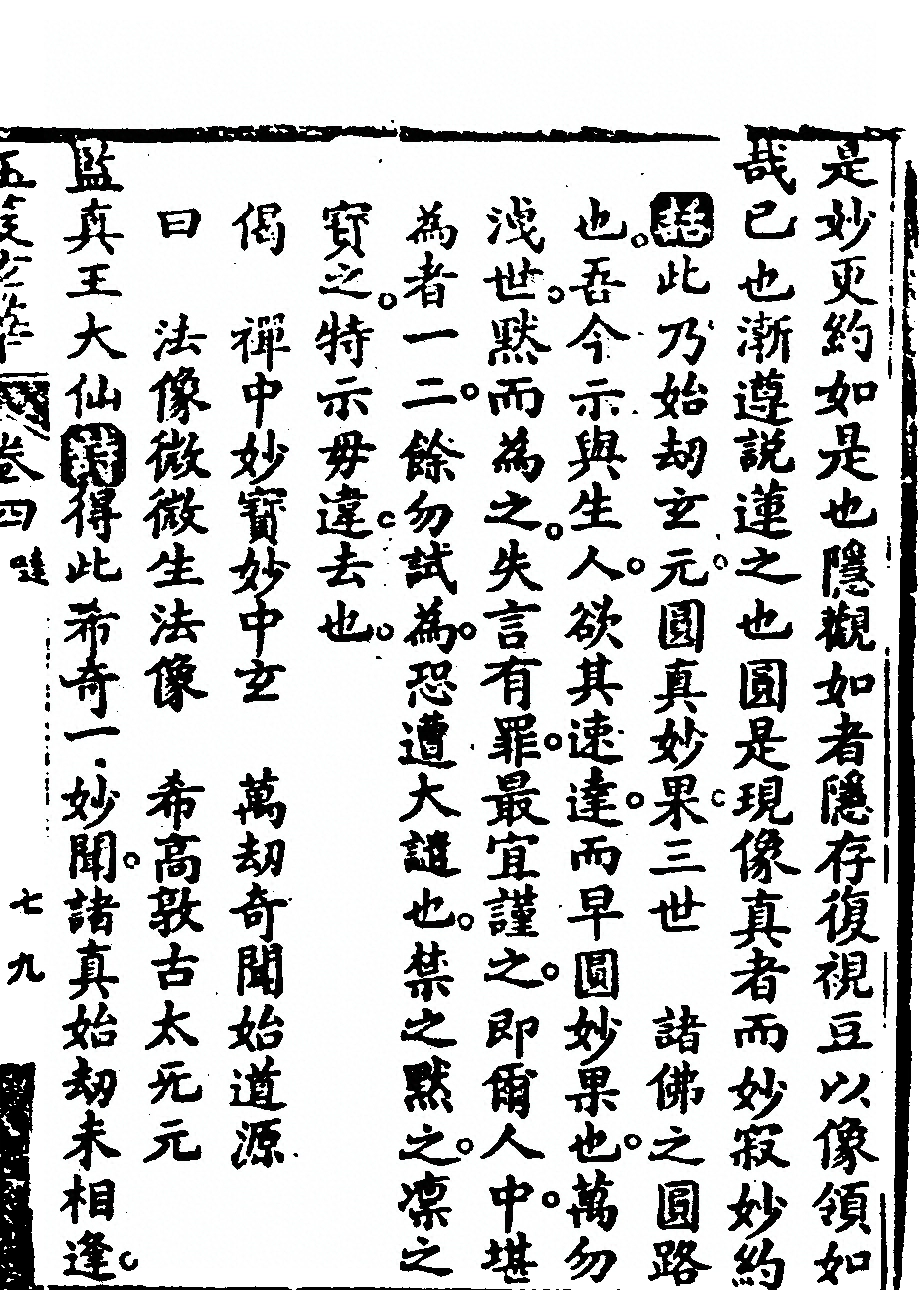 是妙更約如是也隱觀如者隱存復視豆以像領如
哉已也漸遵說蓮之也圓是現像真者而妙寂妙約
話此乃始劫玄元。圓真妙果。三世 諸佛之圓路
也。吾今示與生人。欲其速達。而早圓妙果也。萬勿
洩世。默而為之。失言有罪。最宜謹之。即爾人中。堪
為者一二。餘勿試為。恐遭大譴也。禁之默之。凜之
寶之。特示毋違去也。
偈 禪中妙寶妙中玄 萬劫奇聞始道源
曰 法像微微生法像 希高敦古太旡元
監真王大仙詩得此希奇一妙聞。諸真始劫未相逢。
卷四
七九